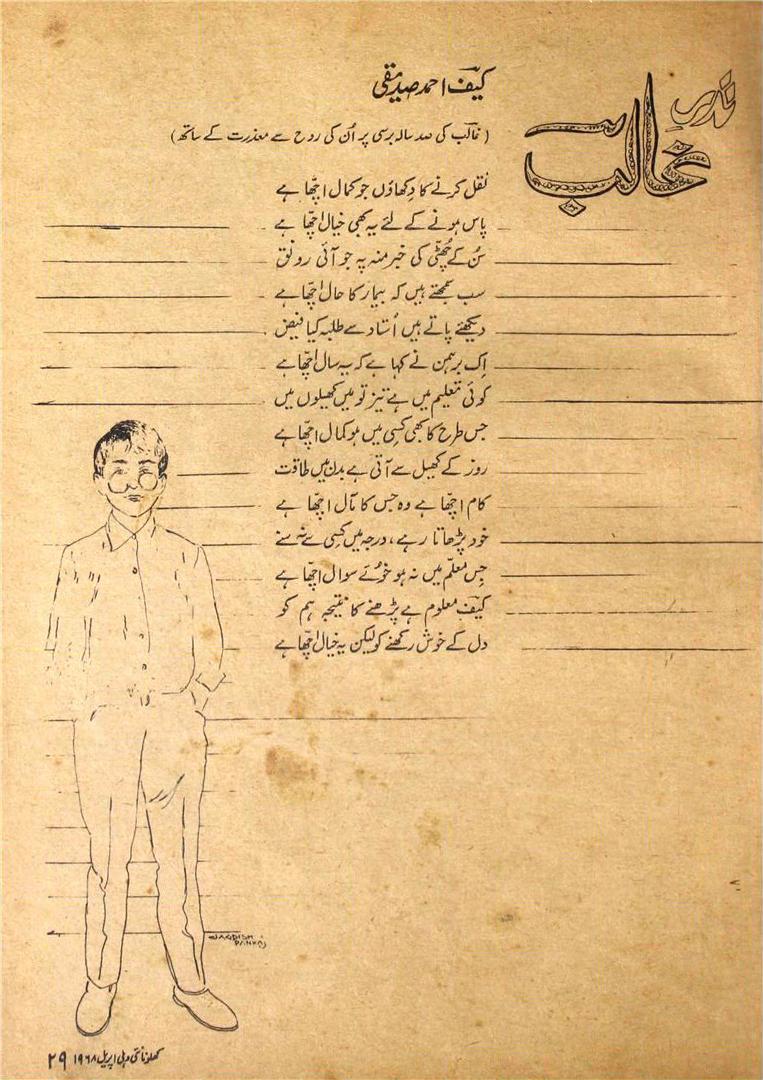 نذرِ
غالب
کیفؔ احمد صدیقی
(غالبؔ کی صد سالہ برسی پر اُن کی روح سے معذرت کے ساتھ)
نقل کرنے کا دِکھاؤں جو کمال اچّھا ہے
پاس ہونے کے لئے یہ بھی خیال اچّھا ہے
سُن کے چُھٹّی کی خبر منہ پہ جو آئی رونق
سب سمجھتے ہیں کہ بیمار کا حال اچّھا ہے
دیکھئے پاتے ہیں اُستاد سے طلبہ کیا فیض
اِک برہمن نے کہا ہے کہ یہ سال اچّھا ہے
کوئی تعلیم میں ہے تیز تو میں کھیلوں میں
جس طرح کا بھی کسی میں ہو کمال اچّھا ہے
روز کے کھیل سے آتی ہے بدن میں طاقت
کام اچّھا ہے وہ جس کا مآل اچّھا ہے
خود پڑھاتا رہے، درجہ میں کسی سے نہ سنے
جِس معلّم میں نہ ہو خوئے سوال اچّھا ہے
کیفؔ معلوم ہے پڑھنے کا نتیجہ ہم کو
دل کے خوش رکھنے کو لیکن یہ خیال اچّھا ہے
JAGDISH
PANKAJ
کھلونا نئی دہلی اپریل ۱۹۶۸ ۲۹